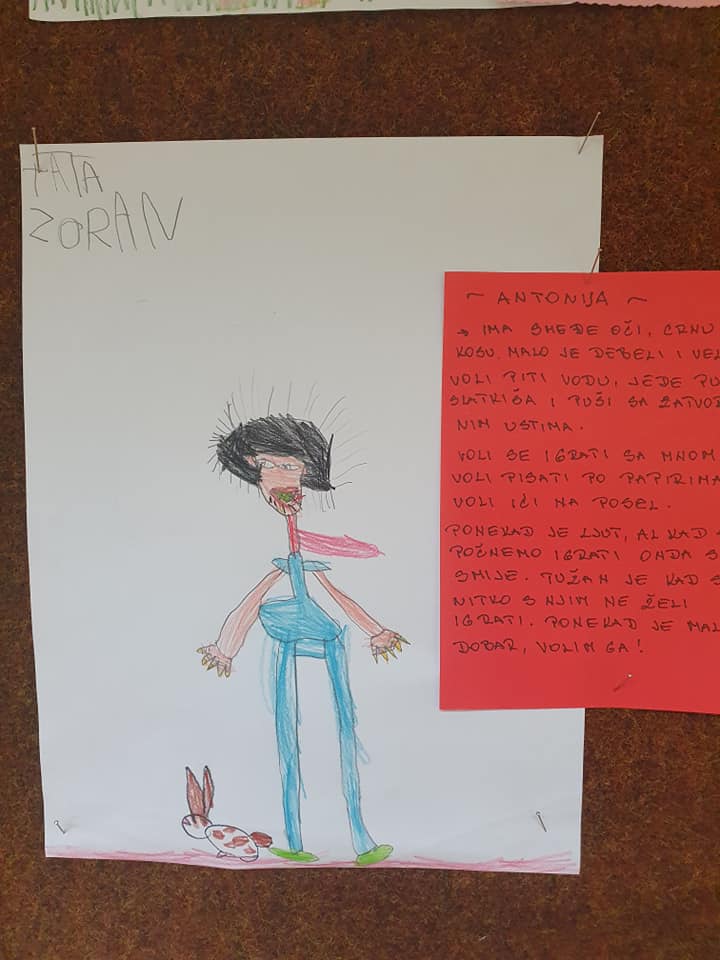 TATA
ZORAN
~ ANTONIJA ~
→ IMA SMEĐE OČI, CRNU
KOSU. MALO JE DEBELI I VEL
VOLI PITI VODU, JEDE PU
SLATKIŠA I PUŠI SA ZATVO
NIM USTIMA.
VOLI SE IGRATI SA MNOM
VOLI PISATI PO PAPIRIMA
VOLI IĆI NA POSEL.
PONEKAD JE LJUT, AL KAD S
POČNEMO IGRATI ONDA S
SMIJE. TUŽAN JE KAD S
NITKO S NJIM NE ŽELI
IGRATI. PONEKAD JE MAL
DOBAR, VOLIM GA!